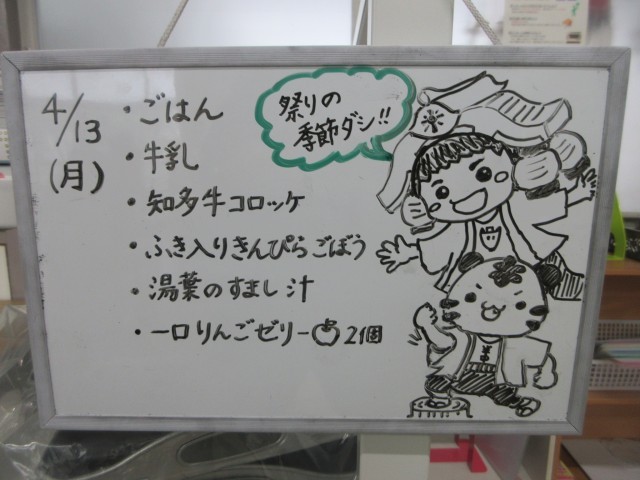 4/13
(月)
・ごはん
・牛乳
・知多牛コロッケ
・ふき入りきんぴらごぼう
・湯葉のすまし汁
・一口りんごゼリー 2個
祭りの
季節ダシ!!